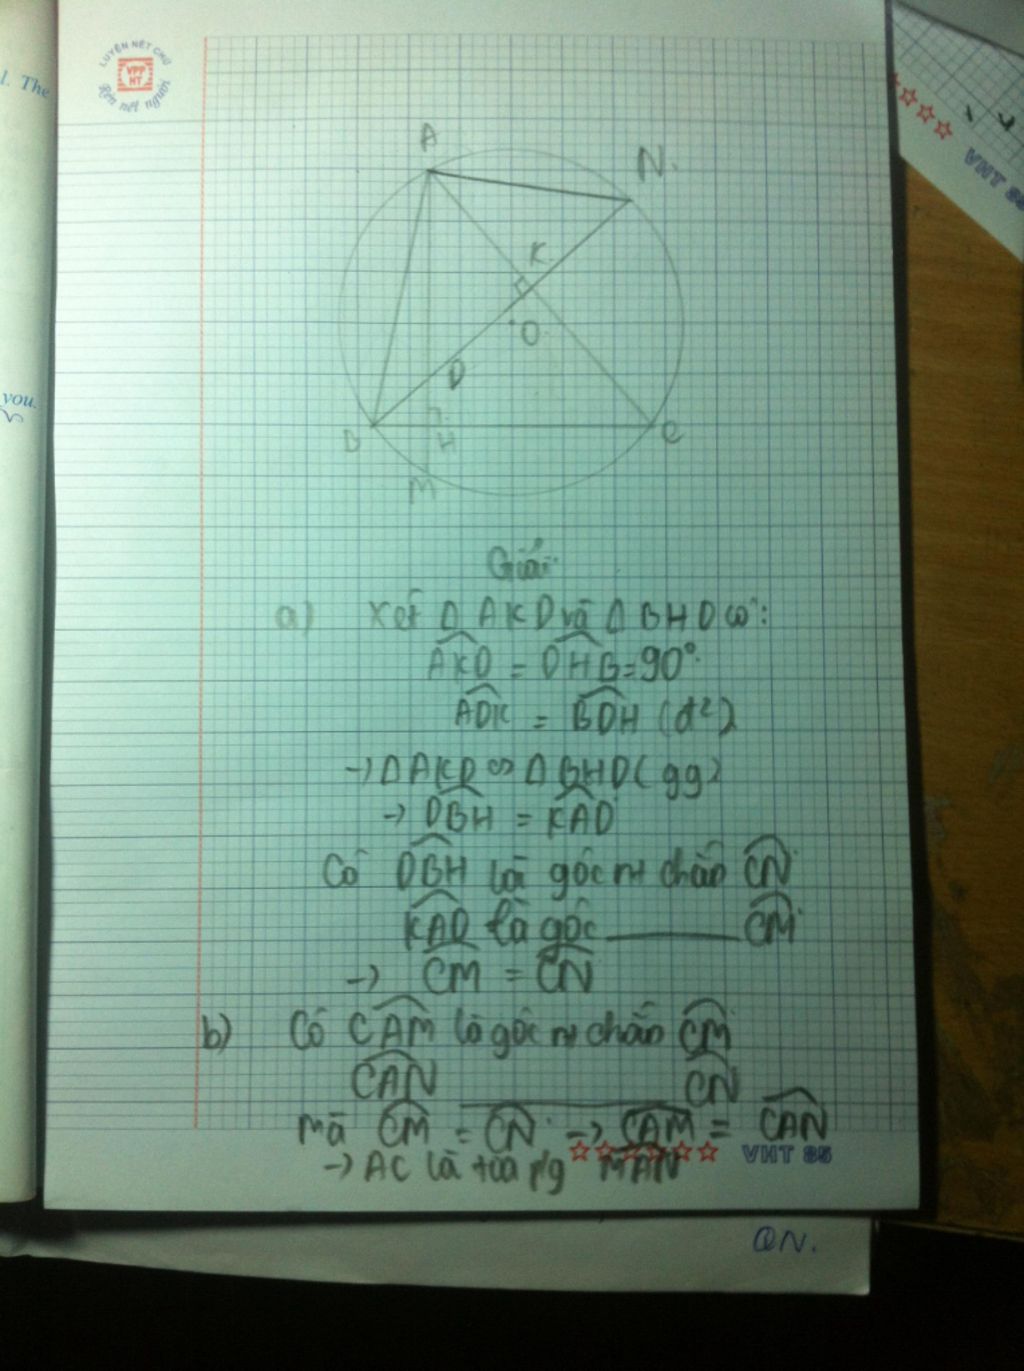 LUYỆN NÉT CHỮ
VPP
NT
Rèn nết người
l. The
you.
VHT
A
N.
K
O
D
B
H
C
M
Giải:
a) Xét Δ AKD và Δ BHD có:
AKD = DHB = 90°
ADK = BDH (đ²)
→ Δ AKD ∽ Δ BHD (gg)
→ DBH = KAD
Có DBH là góc nt chắn CN
KAD là góc ——— CM
→ CM = CN
b) Có CAM là góc nt chắn CM
CAN ——— CN
mà CM = CN → CAM = CAN
→ AC là tia p/g MAN
☆☆☆☆☆☆ VHT 85
QN.